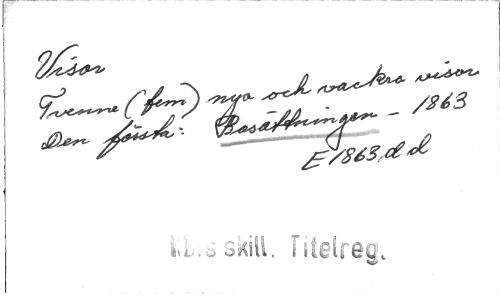 Visor
Tvenne (fem) nya och vackra visor
Den första: Bosättningen - 1863
E 1863, d d
KB:s skill. Titelreg.